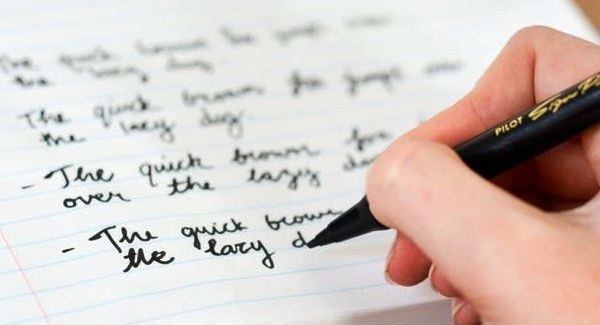 The quick brown fox jumps
the lazy dog
The quick brown fox jumps over
the lazy dog.
- The quick brown fox
over the lazy
- The quick brown
the lazy d
PILOT